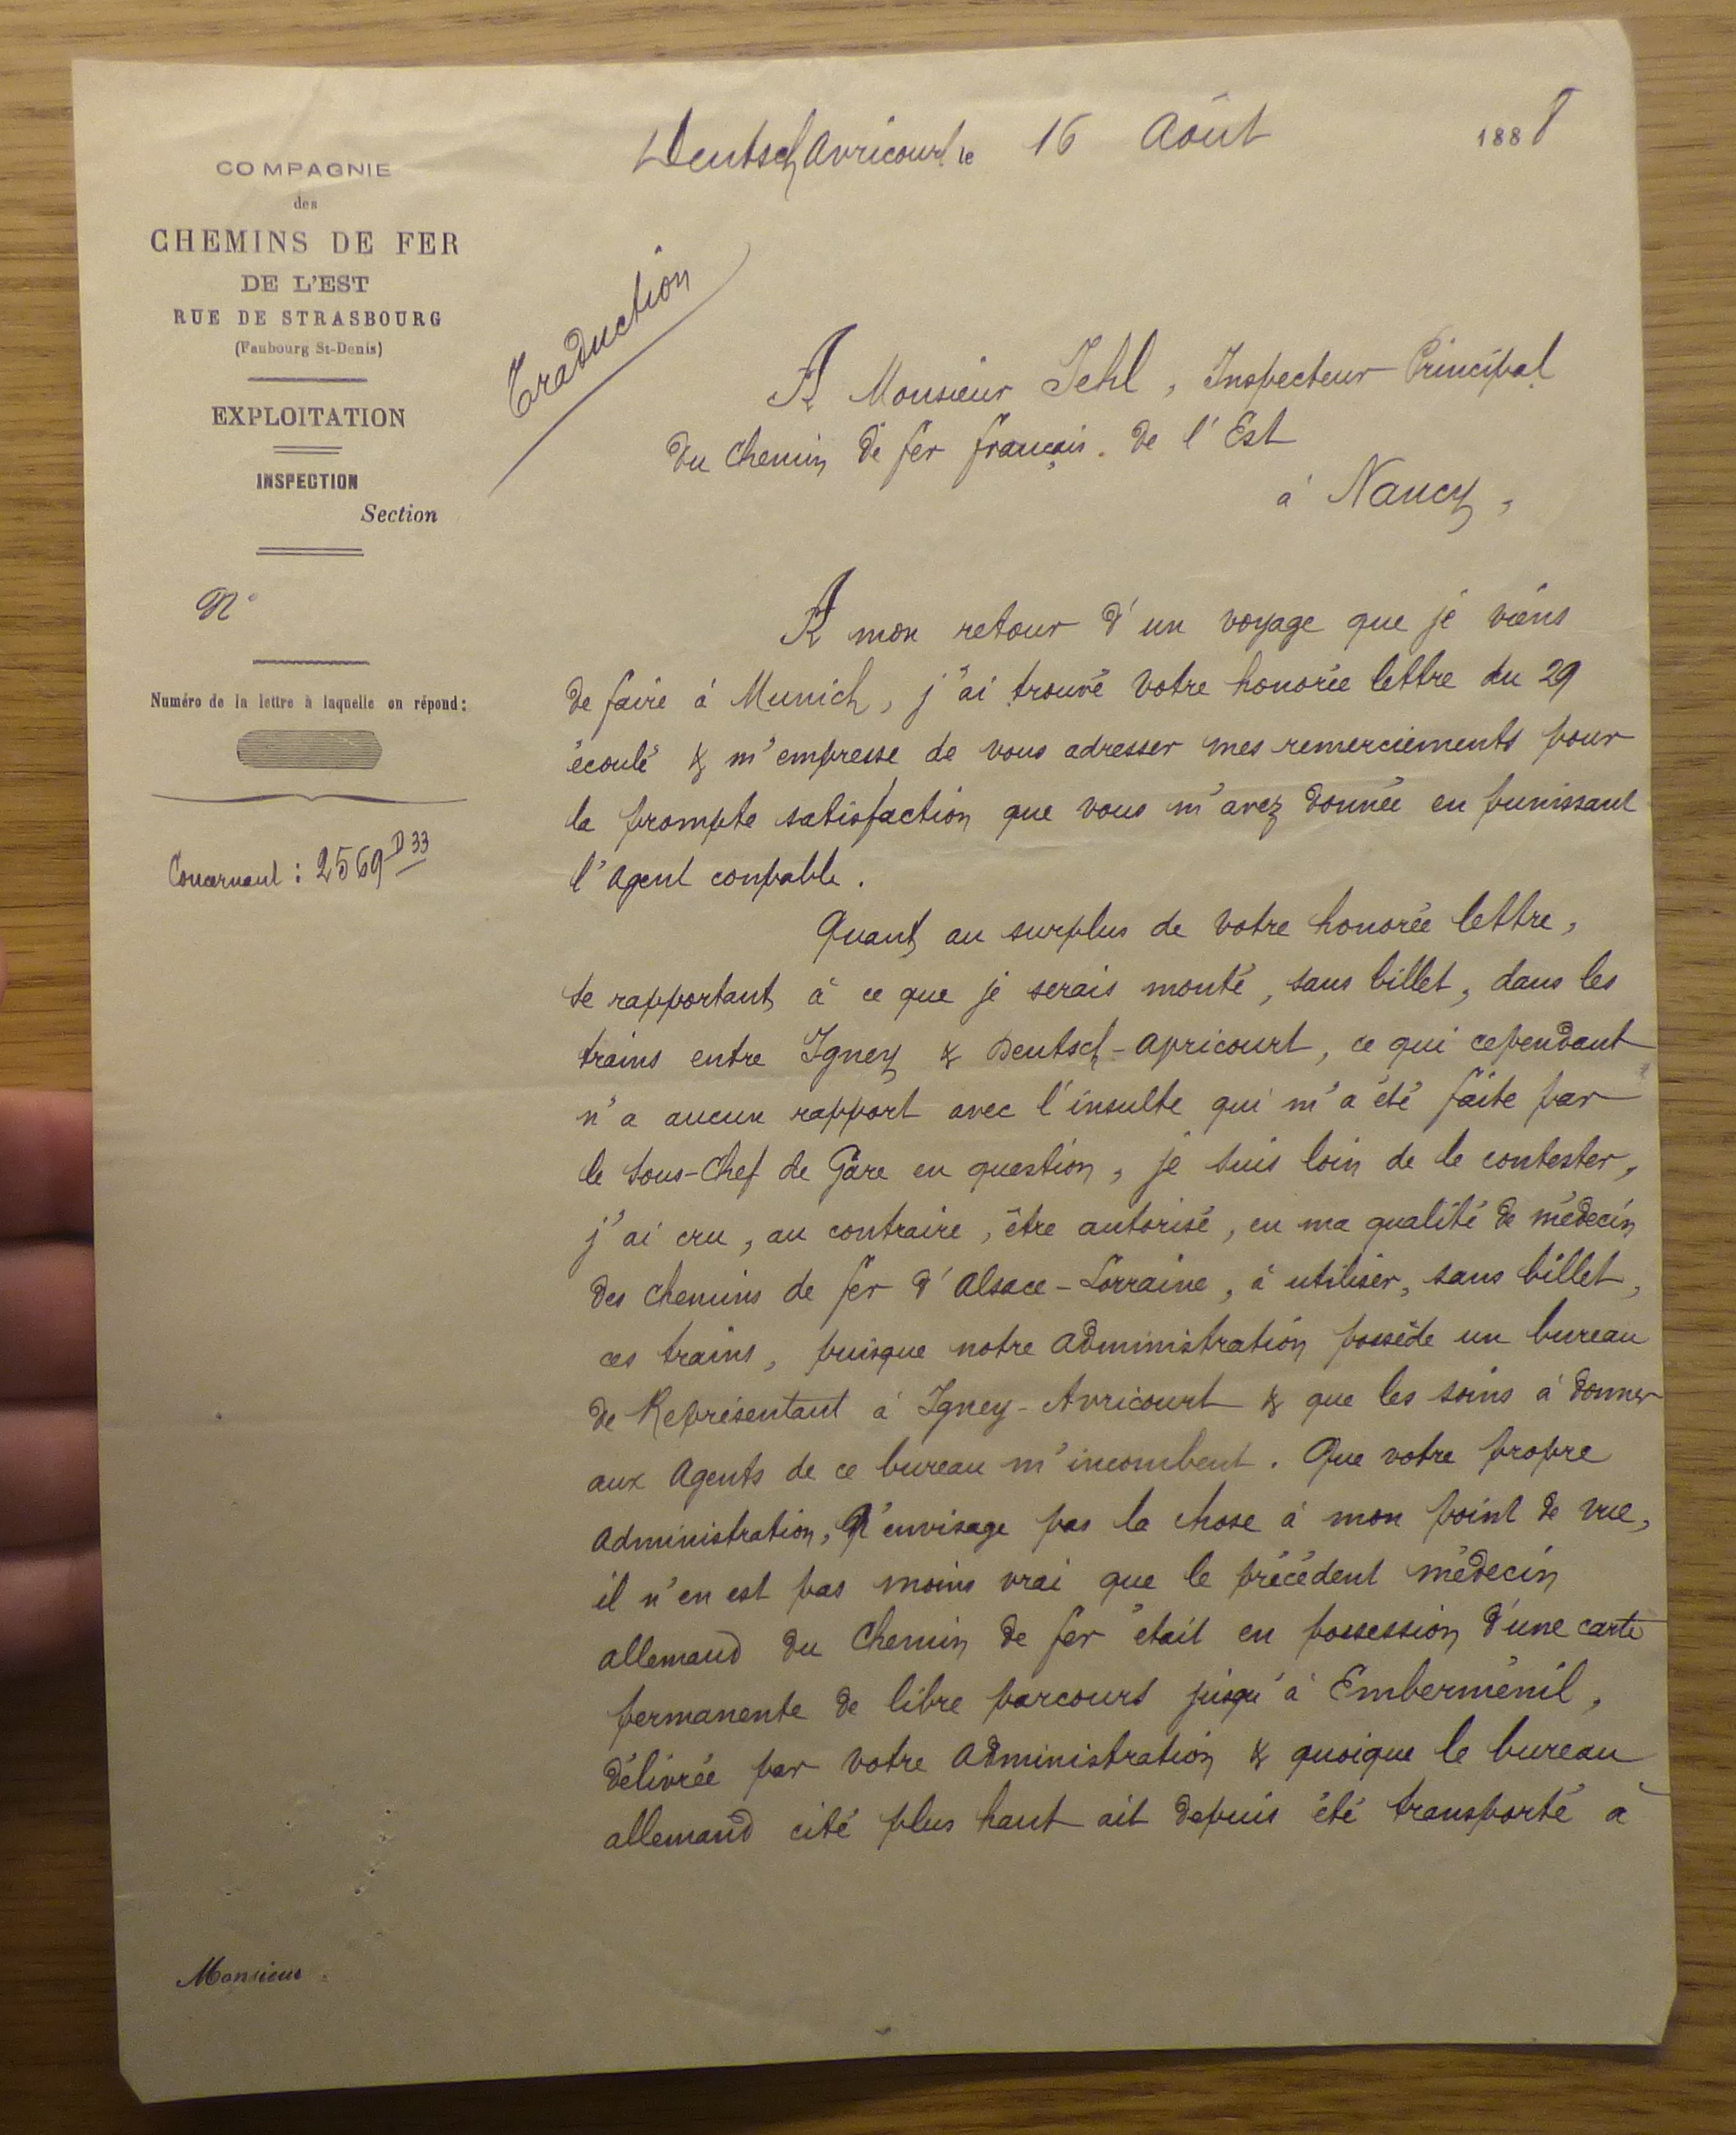 COMPAGNIE
des
CHEMINS DE FER
DE L'EST
RUE DE STRASBOURG
(Faubourg St-Denis)
EXPLOITATION
INSPECTION
Section
N°
Numéro de la lettre à laquelle on répond:
Concernant : 2569 D 33
Deutsch Avricourt le 16 Août 1888
Traduction
A Monsieur Jehl, Inspecteur Principal
du Chemin de fer français. de l'Est
à Nancy,
A mon retour d'un voyage que je viens
de faire à Munich, j'ai trouvé votre honorée lettre du 29
écoulé & m'empresse de vous adresser mes remerciements pour
la prompte satisfaction que vous m'avez donnée en punissant
l'Agent coupable.
Quant au surplus de votre honorée lettre,
se rapportant à ce que je serais monté, sans billet, dans les
trains entre Igney & Deutsch-Avricourt, ce qui cependant
n'a aucun rapport avec l'insulte qui m'a été faite par
le Sous-Chef de Gare en question, je suis loin de le contester,
j'ai cru, au contraire, être autorisé, en ma qualité de médecin
des chemins de fer d'Alsace-Lorraine, à utiliser, sans billet,
ces trains, puisque notre administration possède un bureau
de Représentant à Igney-Avricourt & que les soins à donner
aux Agents de ce bureau m'incombent. Que votre propre
administration, n'envisage pas la chose à mon point de vue,
il n'en est pas moins vrai que le précédent médecin
allemand du Chemin de fer était en possession d'une carte
permanente de libre parcours jusqu'à Emberménil,
délivrée par votre administration & quoique le bureau
allemand cité plus haut ait depuis été transporté à
Monsieur